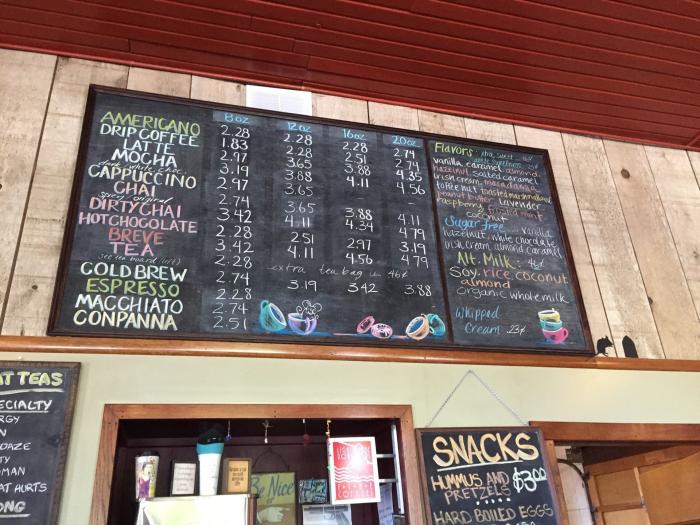 8oz 12oz 16oz 20oz
AMERICANO 2.28 2.28 2.28 2.74
DRIP COFFEE 1.83 2.28 2.51 2.74
LATTE 2.97 3.65 3.88 4.35
MOCHA 3.19 3.88 4.11 4.56
CAPPUCCINO 2.97 3.65 -
CHAI 2.74 3.65 3.88 4.11
DIRTY CHAI 3.42 4.11 4.34 4.79
HOT CHOCOLATE 2.28 2.51 2.97 3.19
BREVE 3.42 4.11 4.56 4.79
TEA 2.28 extra tea bag 46¢
see tea board (left)
COLD BREW 2.74 3.19 3.42 3.88
ESPRESSO 2.28
MACCHIATO 2.74
CONPANNA 2.51
Flavors:
vanilla, caramel, almond,
hazelnut, salted caramel
irish cream, macadamia
toffee nut, toasted marshmallow
peanut butter, lavender
raspberry, mint
coconut
Sugar free vanilla
hazelnut, white chocolate
irish cream, almond, caramel
Alt. Milk: 46¢
Soy, rice, coconut
almond
Organic whole milk
Whipped
Cream 23¢
AT TEAS
SPECIALTY
DAZE
HURTS
Be Nice
SNACKS
HUMMUS AND $3.00
PRETZELS
HARD BOILED EGGS